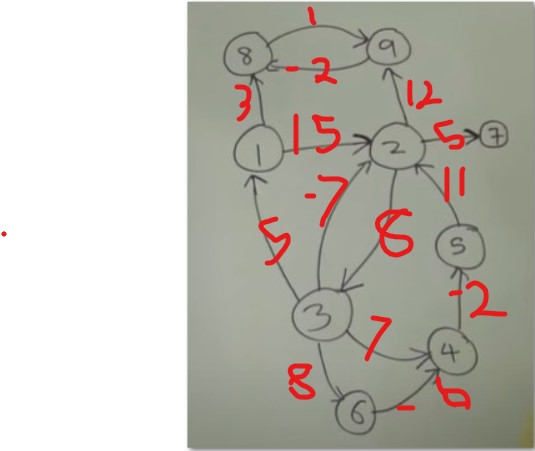 1
8 9
-2
3 12
1 15 2 5 7
-7 11
5 5
-2
3 7
4
8
6